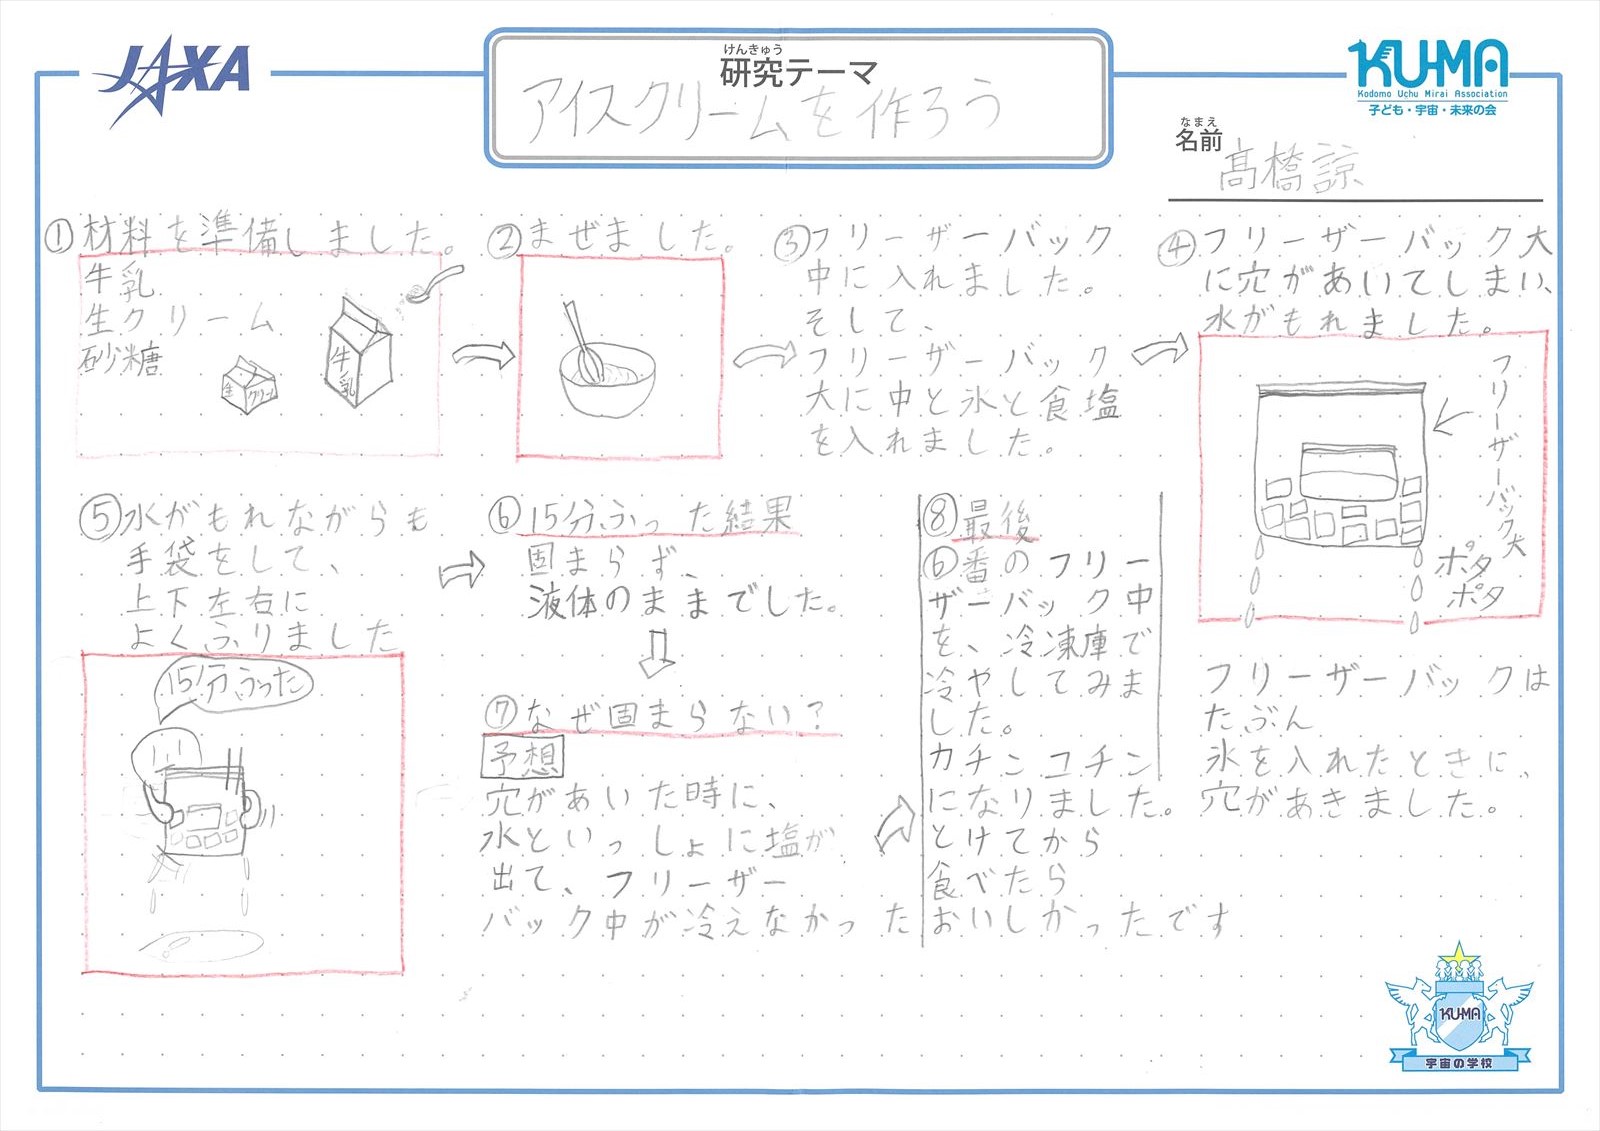 JAXA
けんきゅう
研究テーマ
アイスクリームを作ろう
KU-MA
Kodomo Uchu Mirai Association
子ども・宇宙・未来の会
なまえ
名前
髙橋諒
①材料を準備しました。
牛乳
生クリーム
砂糖
生
クリーム
牛乳
②まぜました。
③フリーザーバック
中に入れました。
そして、
フリーザーバック
大に中と氷と食塩
を入れました。
④フリーザーバック大
に穴があいてしまい、
水がもれました。
フリーザーバック大
ポタ
ポタ
フリーザーバックは
たぶん
氷を入れたときに、
穴があきました。
⑤水がもれながらも
手袋をして、
上下左右に
よくふりました
15分ふった
⑥15分ふった結果
固まらず、
液体のままでした。
⑦なぜ固まらない?
予想
穴があいた時に、
水といっしょに塩が
出て、フリーザー
バック中が冷えなかった
⑧最後
⑥番のフリー
ザーバック中
を、冷凍庫で
冷やしてみま
した。
カチンコチン
になりました。
とけてから
食べたら
おいしかったです
KU-MA
宇宙の学校